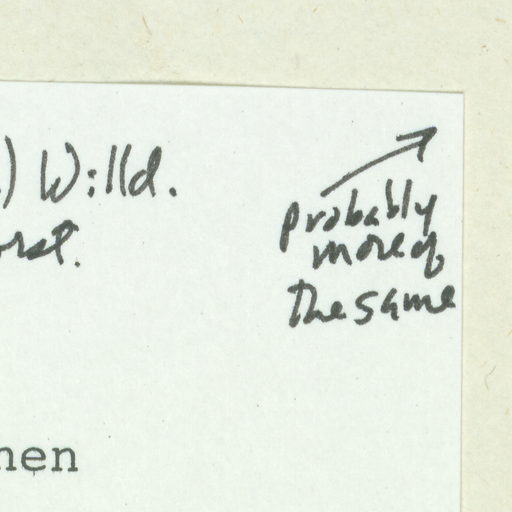 ) Willd.
orst.
probably
more of
the same
nen